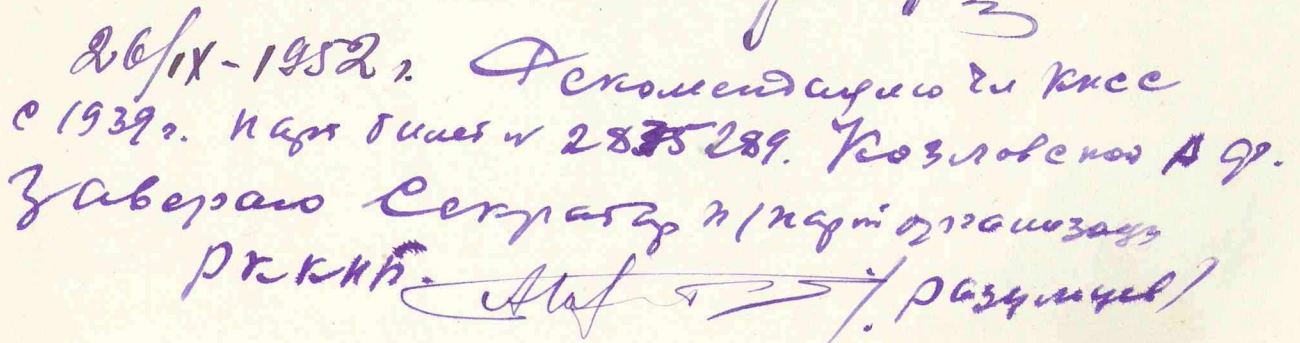 26/IX-1952 г. Рекомендацию Чл КПСС
с 1939 г. Парт билет № 2835289. Козловской А Ф.
Заверяю Секратар п/парт организац
РККПБ. /Разумцев/